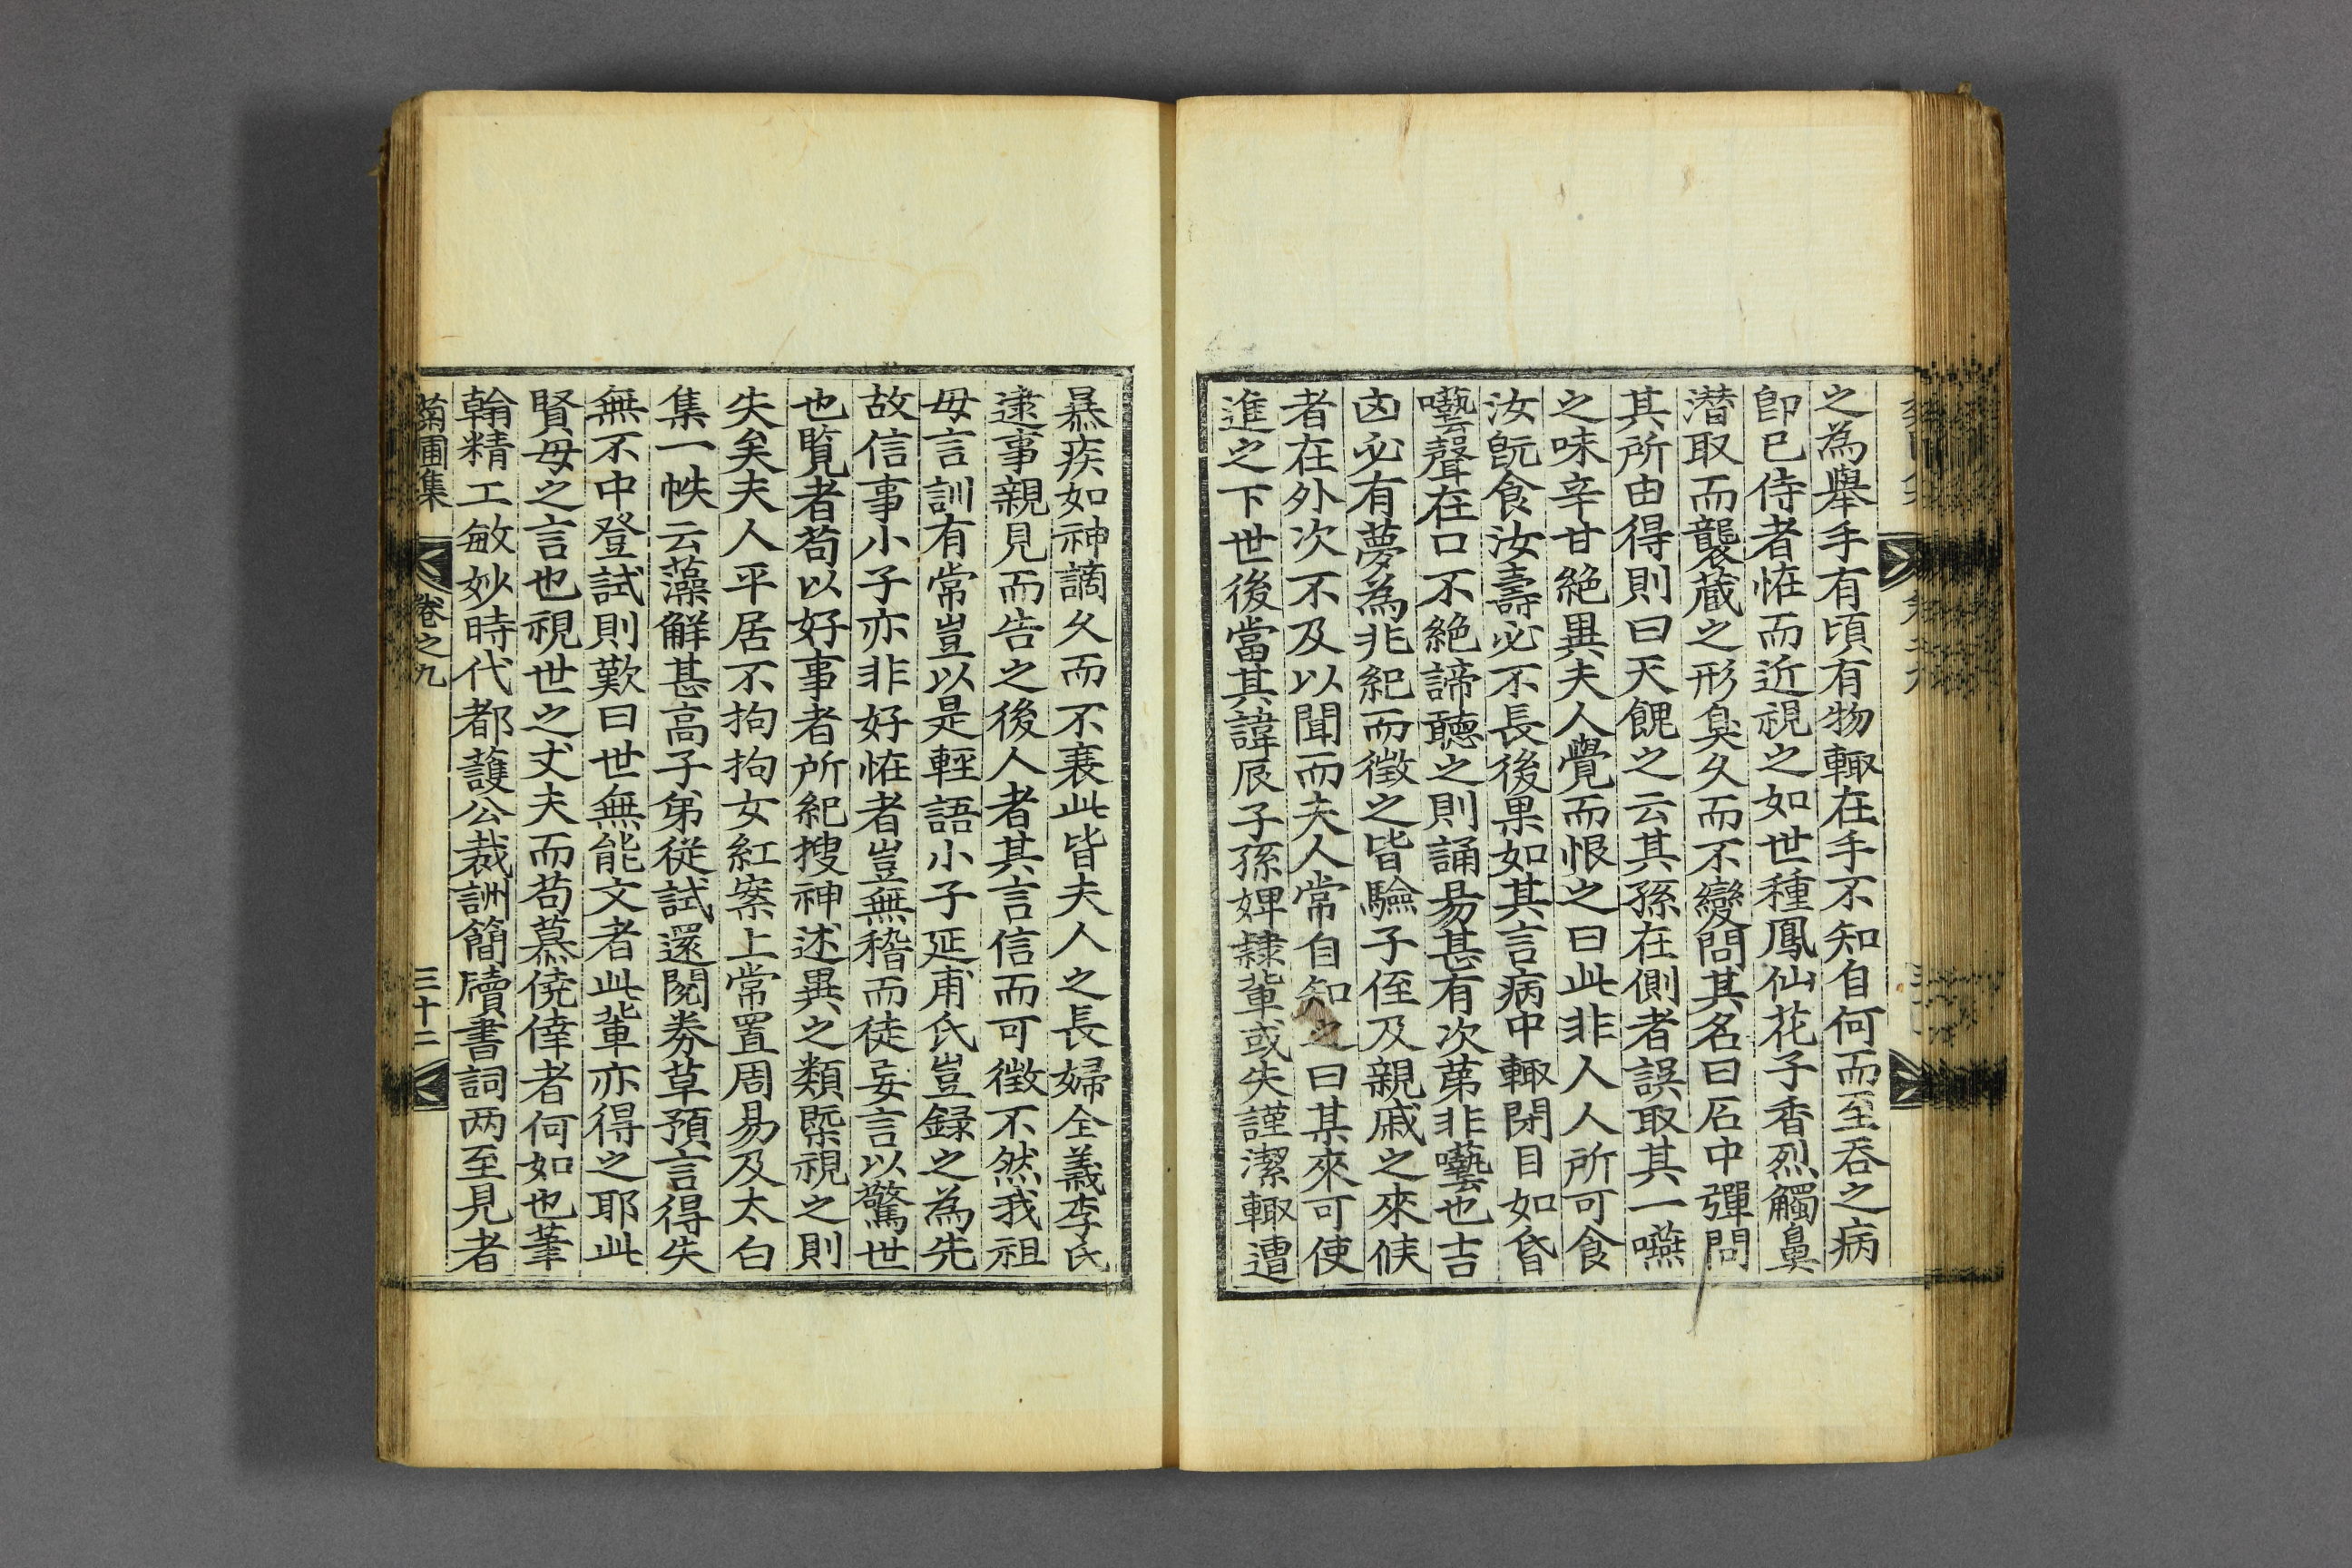 之為舉手有頃有物輙在手不知自何而至吞之病
卽已侍者恠而近視之如世種鳳仙花子香烈觸鼻
潜取而襲蔵之形臭久而不變問其名曰石中彈問
其所由得則曰天餽之云其孫在側者誤取其一嚥
之味辛甘絶異夫人覺而恨之曰此非人人所可食
汝旣食汝壽必不長後果如其言病中輙閉目如昏
囈聲在口不絶諦聽之則誦易甚有次第非囈也吉
凶必有夢為非紀而徵之皆驗子侄及親戚之來候
者在外次不及以聞而夫人常自知之曰某來可使
進之下世後當其諱辰子孫婢隷輩或失謹潔輙遭
暴疾如神謫久而不衰此皆夫人之長婦全義李氏
逮事親見而告之後人者其言信而可徵不然我祖
母言訓有常豈以是輕語小子延甫氏豈録之為先
故信事小子亦非好恠者豈無稽而徒妄言以驚世
也覧者苟以好事者所紀搜神述異之類槩視之則
失矣夫人平居不拘拘女紅案上常置周易及太白
集一帙云藻鮮甚高子弟從試還閱券草預言得失
無不中登試則歎曰世無能文者此輩亦得之耶此
賢母之言也視世之丈夫而苟慕僥倖者何如也筆
翰精工敏妙時代都護公裁詶簡牘書詞两至見者
菊圃集
卷之九
三十二